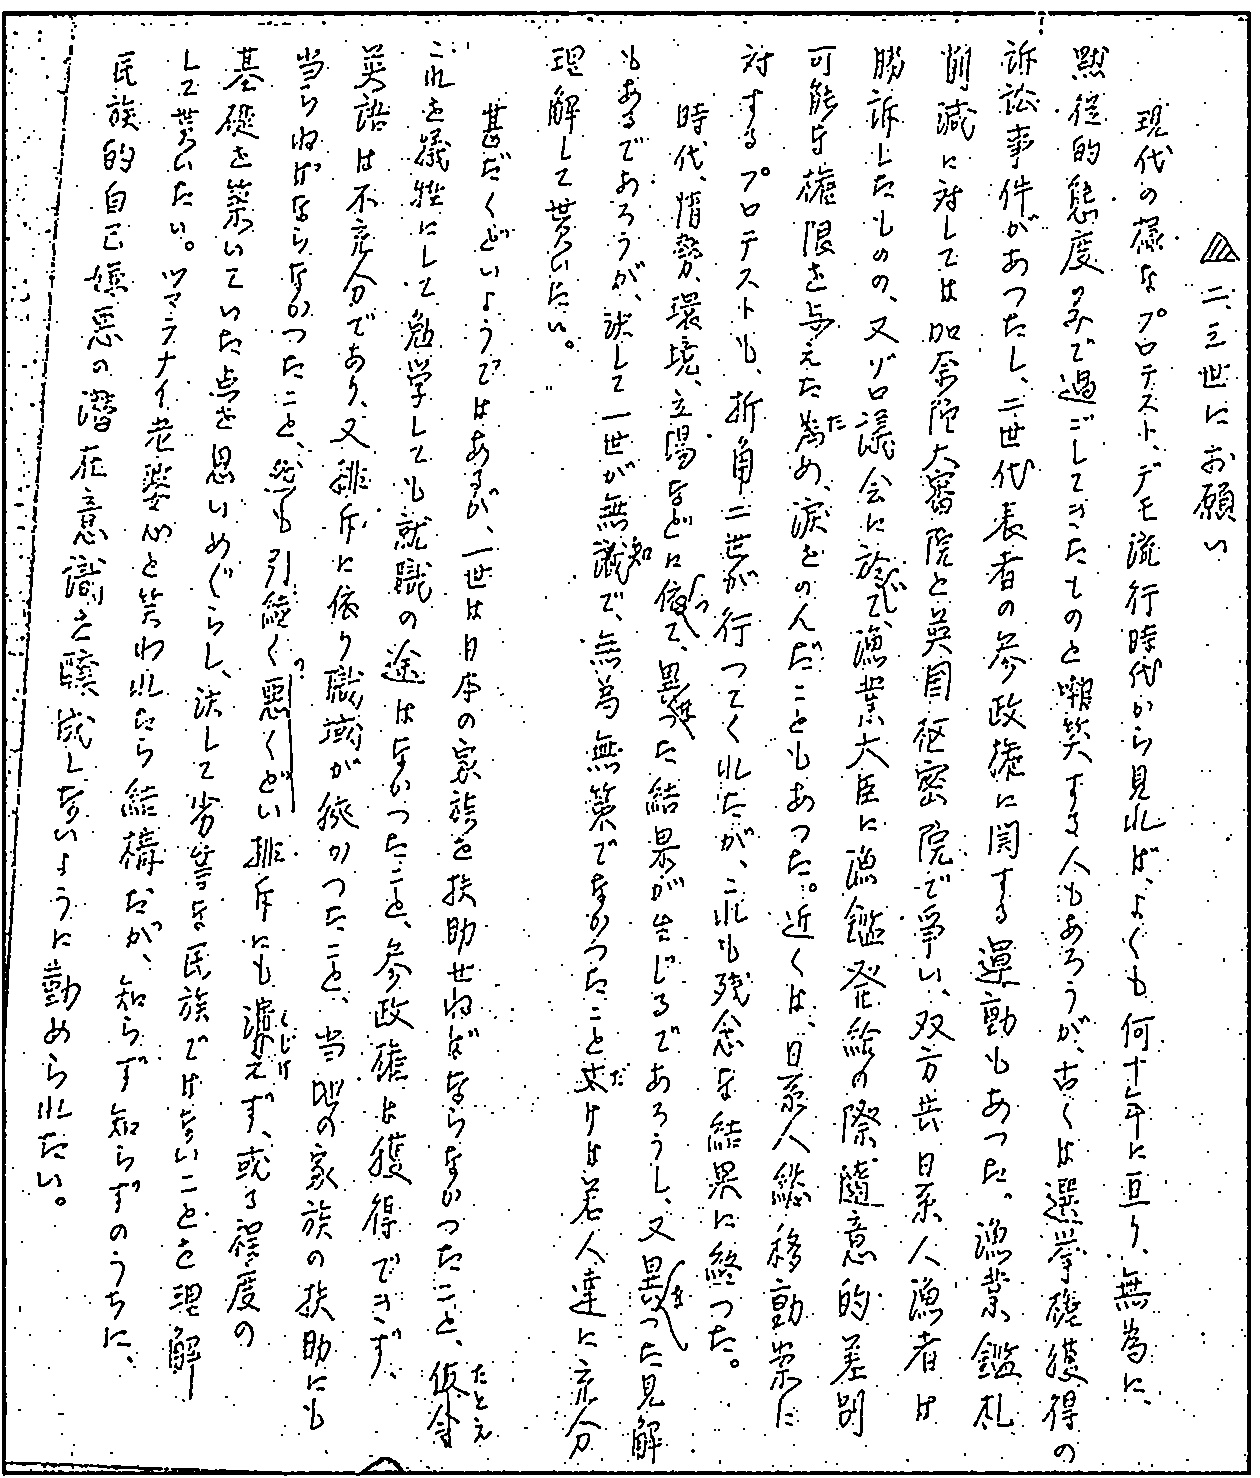 二、三世にお願い
現代の様なプロテスト、デモ流行時代から見れば、よくも何十年に亘り、無為に
黙従的態度のみで過ごしてきたものと嘲笑する人もあろうが、古くは選挙権獲得の
訴訟事件があつたし、二世代表者の参政権に関する運動もあつた。漁業鑑札
削減に対しては加奈陀大審院と英国枢密院で争い、双方共日系人漁者は
勝訴したものの、又ゾロ議会に於て、漁業大臣に漁鑑発給の際、随意的差別
可能な権限を与えた為め、涙をのんだこともあつた。近くは、日系人総移動案に
対するプロテストも、折角二世が行つてくれたが、これも残念な結果に終つた。
時代、情勢、環境、立場などに依つて、異つた結果が生じるであろうし、又異つた見解
もあるであろうが、決して一世が無識知で、無為無策でなかつたこと丈だけは若人達に充分
理解して貰いたい。
甚だくどいようではあるが、一世は日本の家族を扶助せねばならなかつたこと、仮令たとえ
これを犠牲にして勉学しても就職の途はなかつたこと、参政権は獲得できず、
英語は不充分であり、又排斥に依り職域が狭かつたこと、当地の家族の扶助にも
当らねばならなかつたこと、然も引続く悪くどい排斥にもくじけず、或る程度の
基礎を築いていた点を思いめぐらし、決して劣等な民族ではないことを理解
して貰いたい。ツマラナイ老婆心と笑われたら結構だが、知らず知らずのうちに、
民族的自己嫌悪の潜在意識を醸成しないように勤められたい。